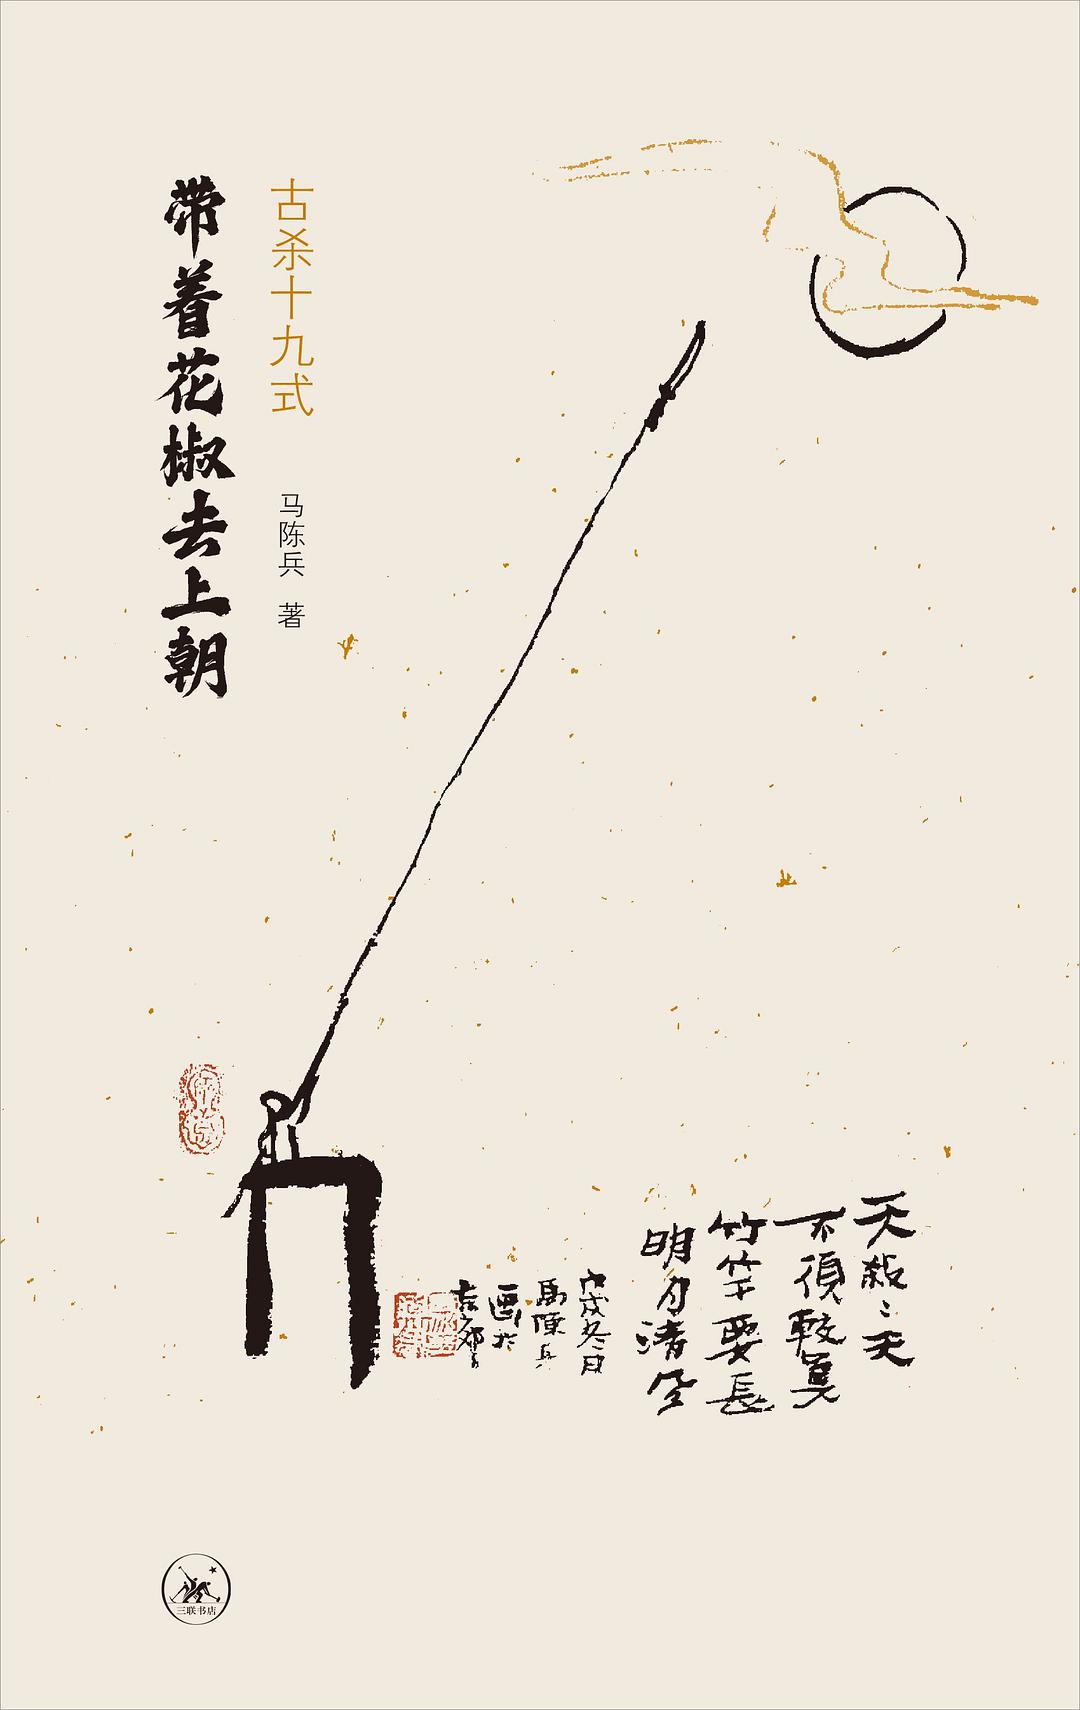 带着花椒去上朝
古杀十九式
马陈兵 著
天殺〻天
不須較真
竹竿要長
明月清空
戊戌冬日
馬陳兵
畫於
三联书店